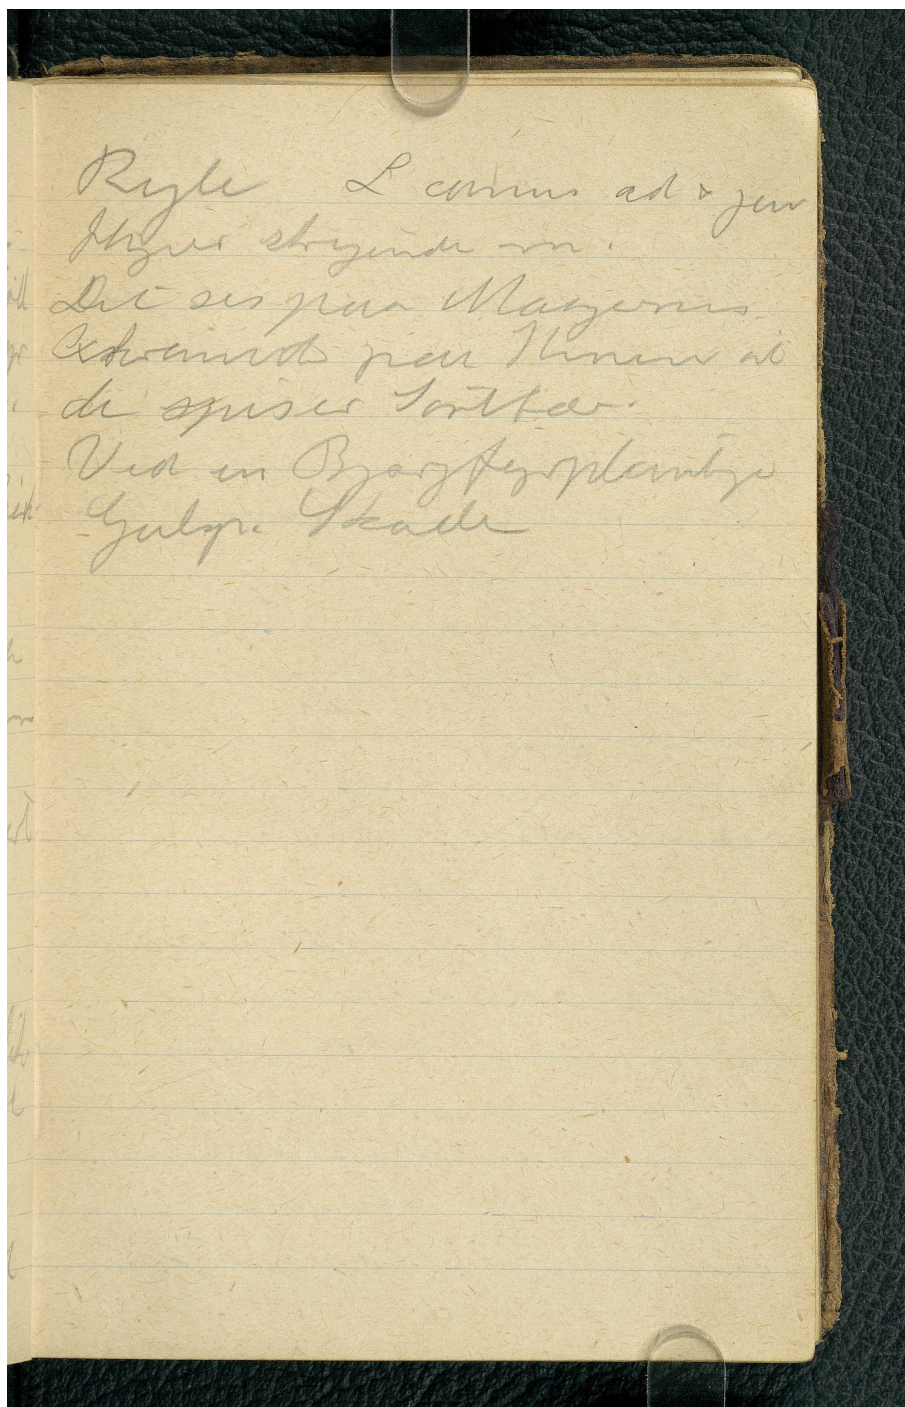 Ryle L canus ad & juv
flyver strygende om.
Det ses paa Maagernes
Exkrementer paa Klinten at
de spiser Sortbær.
Ved en Bjergfyrplantage
Gulsp. Skade